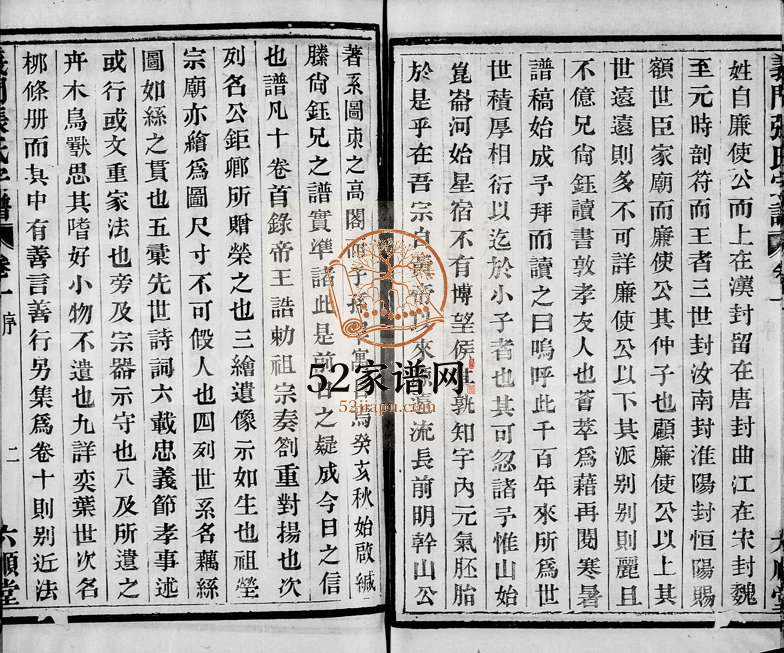 姓自廉使公而上在漢封留在唐封曲江在宋封魏
至元時剖符而王者三世封汝南封淮陽封恒陽賜
額世臣家廟而廉使公其仲子也顧廉使公以上其
世遠遠則多不可詳廉使公以下其派别别則麗且
不億兄尙鈺讀書敦孝友人也薈萃爲藉再閱寒暑
譜稿始成予拜而讀之曰嗚呼此千百年來所爲世
世積厚相衍以迄於小子者也其可忽諸予惟山始
崑崙河始星宿不有博望候其孰知宇內元氣胚胎
於是乎在吾宗自黃帝以來源流長前明幹山公
著系圖束之高閣而子孫焉癸亥秋始啟緘
縢尙鈺兄之譜實準諸此是前之疑成今日之信
也譜凡十卷首錄帝王誥勅祖宗奏劄重對揚也次
列名公鉅鄉所贈榮之也三繪遺像示如生也祖塋
宗廟亦繪爲圖尺寸不可假人也四列世系名藕絲
圖如絲之貫也五彙先世詩詞六載忠義節孝事述
或行或文重家法也旁及宗器示守也八及所遺之
卉木鳥獸思其嗜好小物不遺也九詳奕葉世次名
栁條册而其中有善言善行另集爲卷十則别近法
義門張氏宗譜 卷一 序 二 六順堂
52家谱网
52jiapu.com